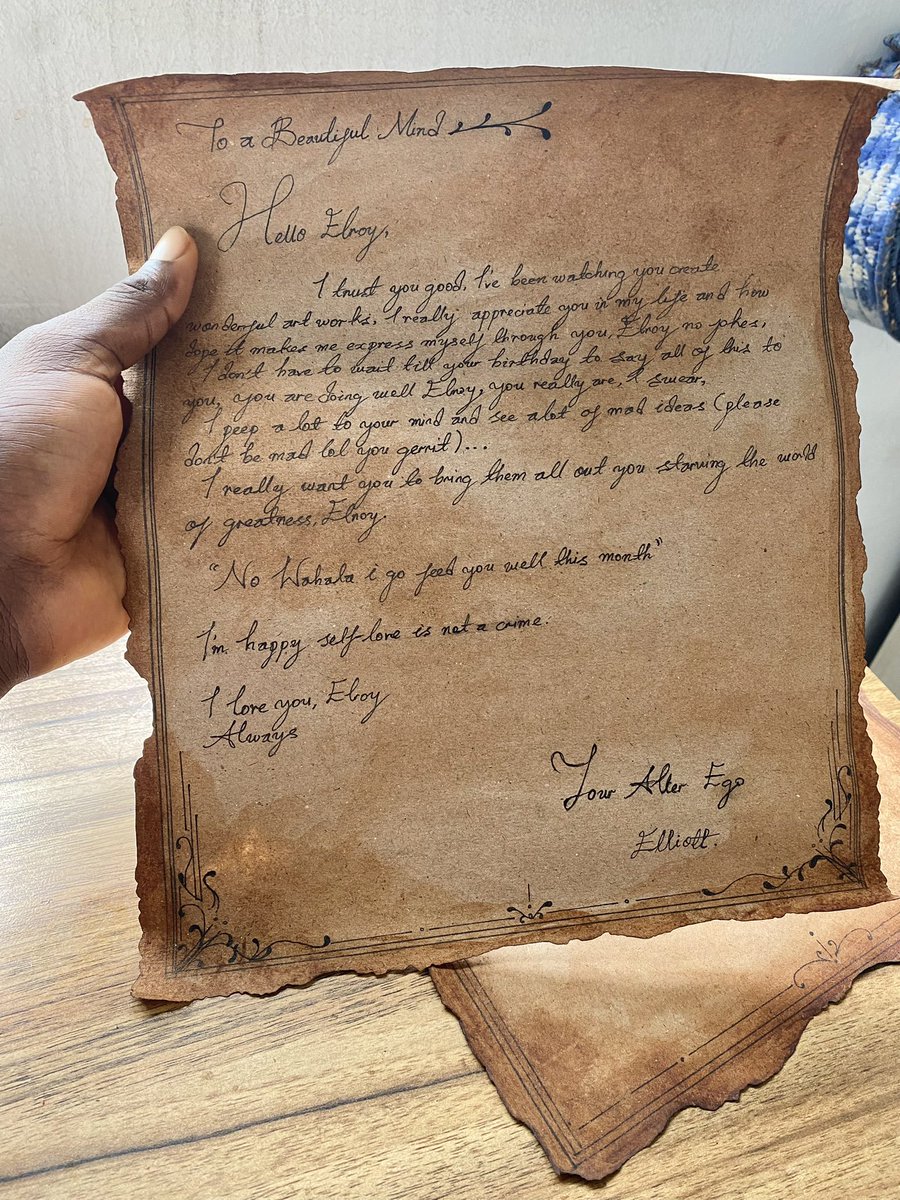 To a Beautiful Mind
Hello Elroy,
I trust you good. I've been watching you create
wonderful art works. I really appreciate you in my life and how
dope it makes me express myself through you, Elroy no jokes.
I don't have to wait till your birthday to say all of this to
you, you are doing well Elroy, you really are, I swear.
I peep a lot to your mind and see alot of mad ideas (please
don't be mad lol you gerrit)...
I really want you to bring them all out you starving the world
of greatness, Elroy.
"No Wahala i go feed you well this month"
I'm happy self-love is not a crime.
I love you, Elroy
Always
Your Alter Ego
Elliott.